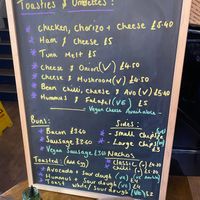 Toasties & Omlettes:
* chicken, Chorizo + cheese £5.40
* Ham & cheese £5
* Tuna Melt £5
* cheese & Onion (V) £4.50
* Cheese & Mushroom (V) £4.50
* Bean Chilli, cheese & Avo (V) £5.40
* Hummus & Falafel (VE) £5
Vegan Cheese Available
Buns: Sides:
* Bacon * Small Chips
* Sausage * Large Chips
* Vegan Sausage Nachos
Toasted: * Classic
* Avocado + Sour dough (VE) * Chilli
* Hummus + Sour dough (VE) £4
* Toast White / Sour dough (VE) £2